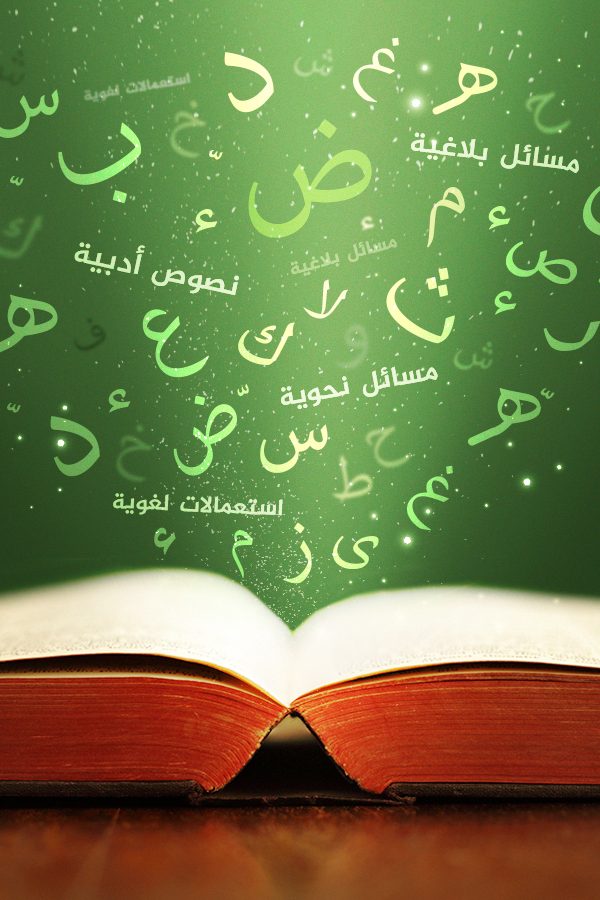 ش
د
ش
غ
ه
استعمالات لغوية
س
خ
ح
ب
ض
مسائل بلاغية
م
ء
ء
ء
ص
ك
نصوص أدبية
مسائل بلاغية
لا
ث
ء
ر
ه
ع
ك
و
ف
ش
مسائل نحوية
ء
ض
ه
د
خ
س
ح
ط
غ
استعمالات لغوية
ء
م
ز
ى